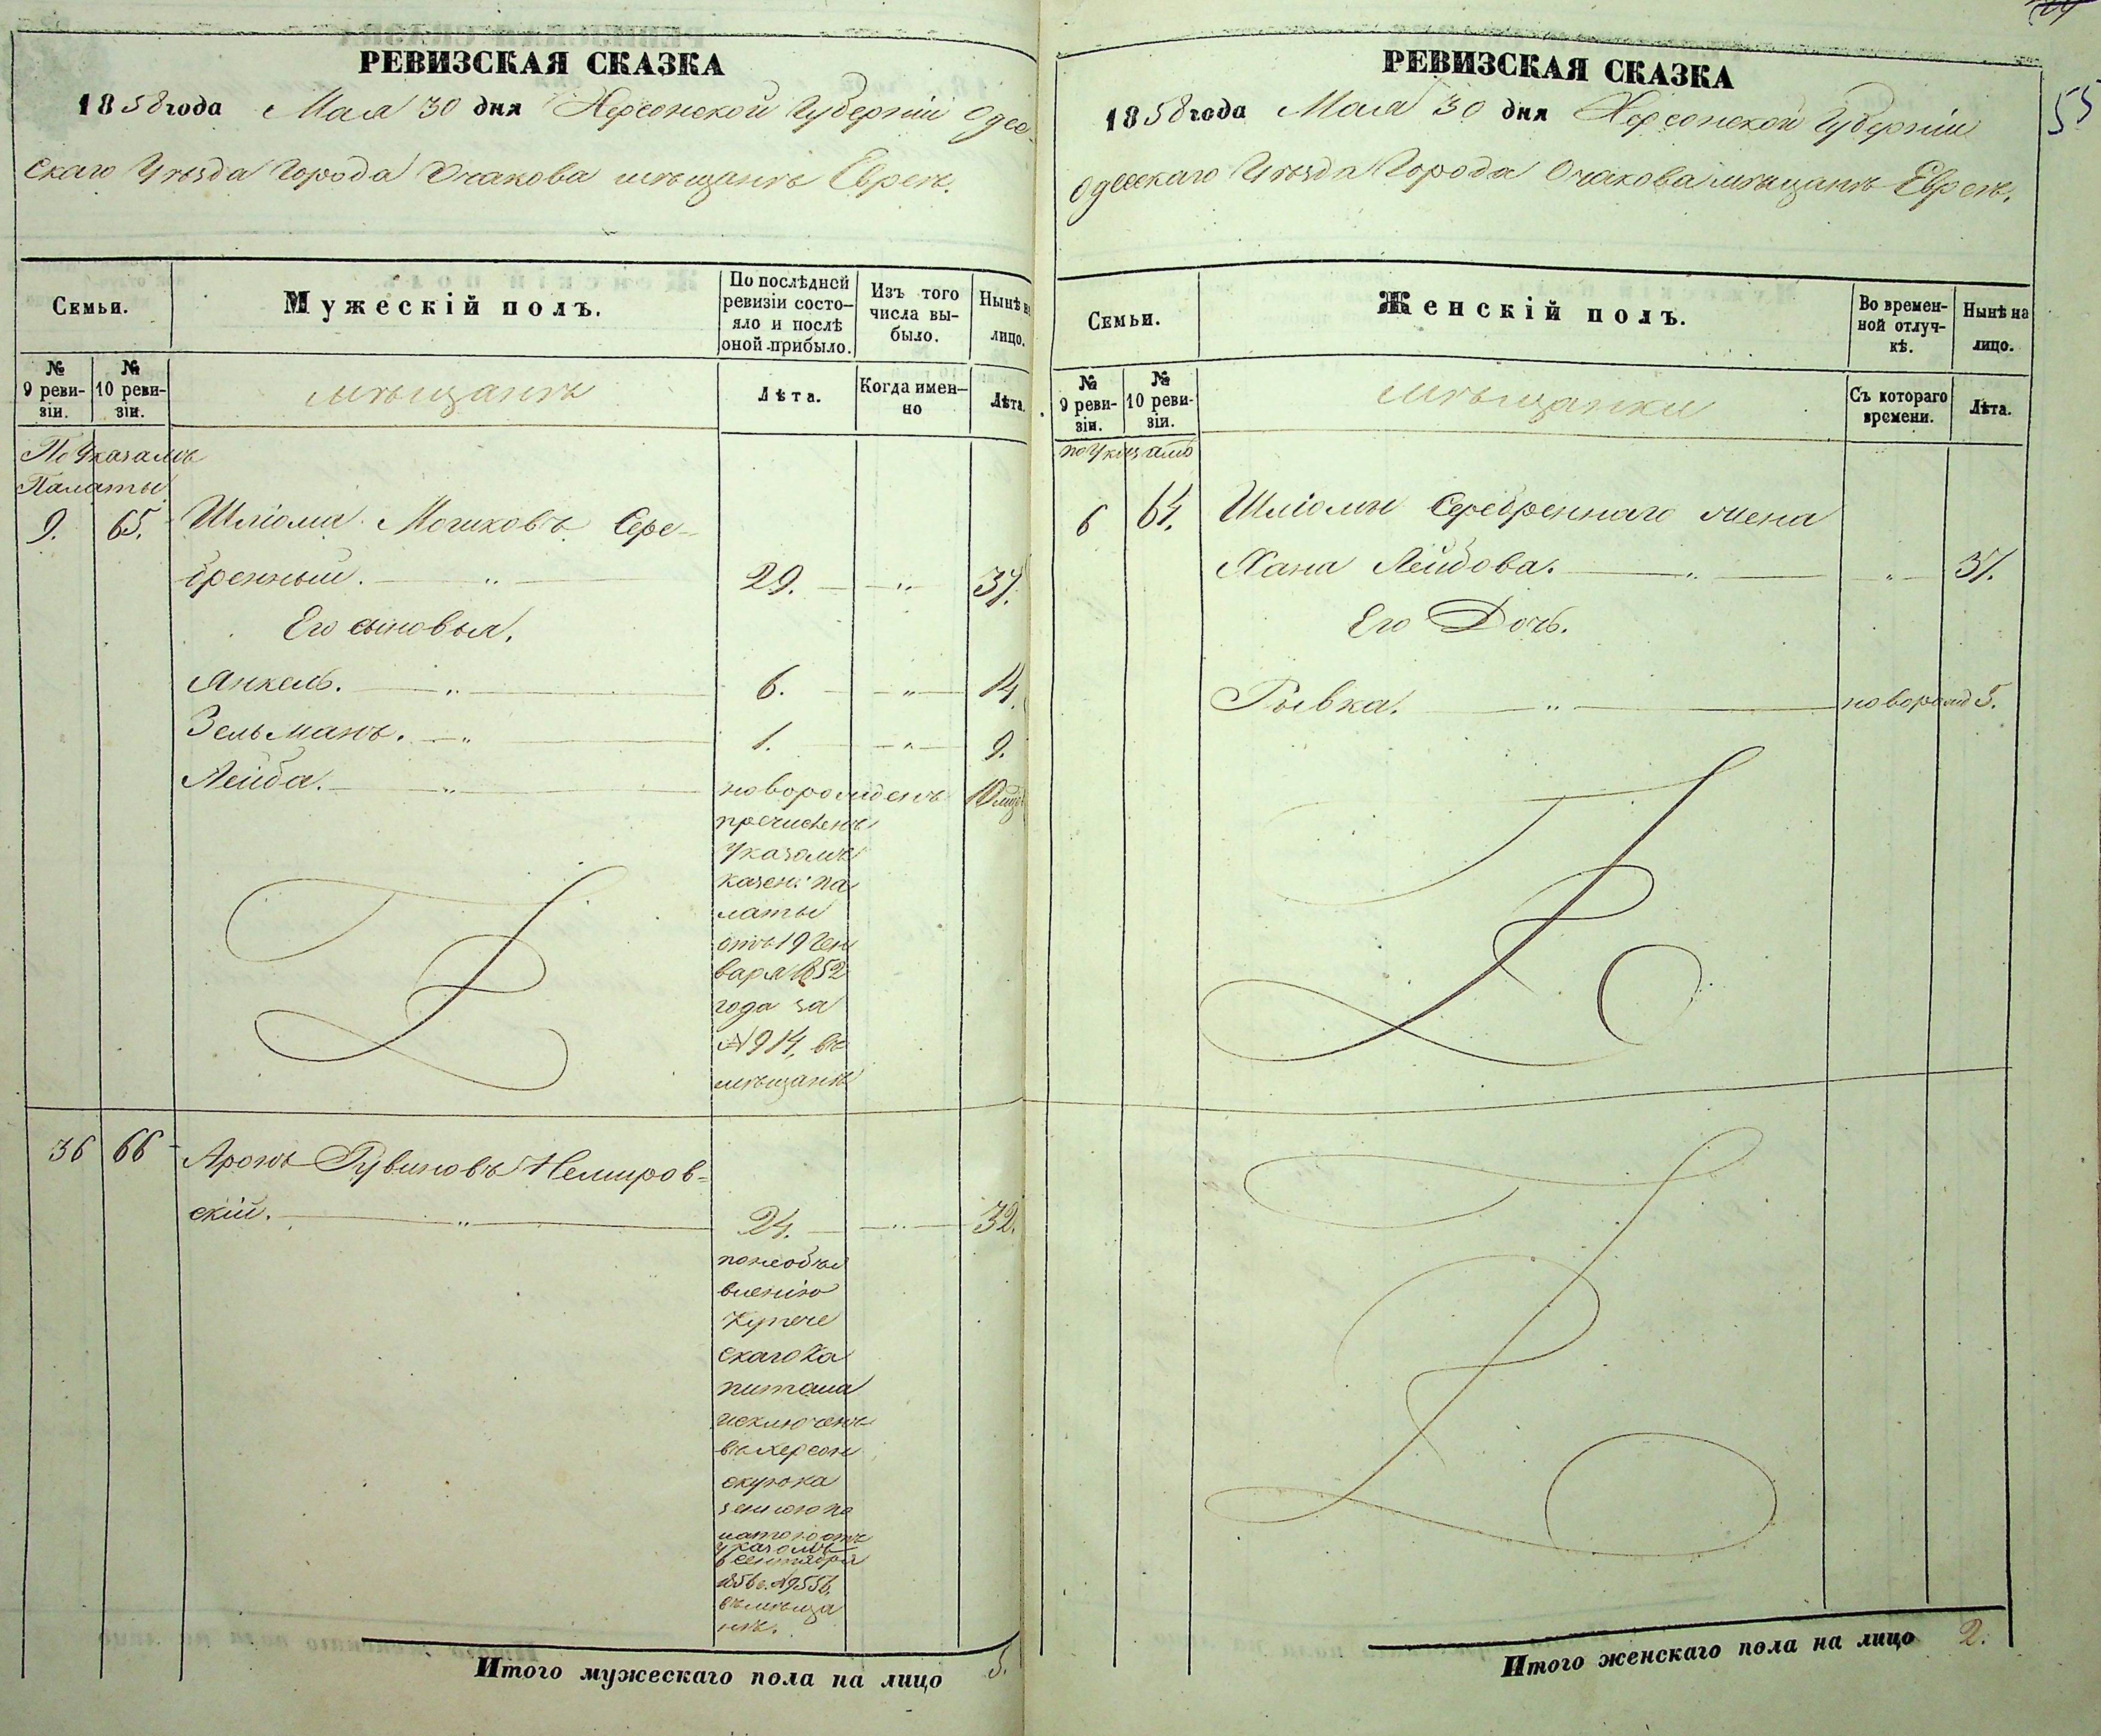 РЕВИЗСКАЯ СКАЗКА
1858 года Мая 30 дня Херсонской Губерніи Одес
скаго Уѣзда Города Очакова мѣщанъ Евреевъ.
Семьи.
Мужескій полъ.
По послѣдней
ревизіи состо-
яло и послѣ
оной прибыло.
Изъ того
числа вы-
было.
Нынѣ на
лицо.
№
9 реви-
зіи.
№
10 реви-
зіи.
мѣщанъ
Лѣта.
Когда имен-
но
Лѣта.
По Указамъ
Палаты
9. 65. Шліома Мошковъ Сере-
бренный. — " — 29. — " — 37.
Его сыновья.
Янкель. — " — 6. — " — 14.
Зельманъ. — " — 1. — " — 9.
Лейба. — " — новорожденъ 10
причисленъ
Указомъ
казен: па
латы
отъ 19 Ген
варя 1852
года за
№ 914, въ
мѣщане
36 66 Аронъ Рувиновъ Немиров-
скій. — " — 24. — " — 32.
по необъя
вленію
Купече
скаго Ка
питала
исключенъ
въ Херсон
скую ка
зенною па
латою отъ
указомъ
6 сентября
1856 г. № 9556,
въ мѣща
не.
Итого мужескаго пола на лицо 5.
РЕВИЗСКАЯ СКАЗКА
1858 года Мая 30 дня Херсонской Губерніи
Одесскаго Уѣзда Города Очакова мѣщанъ Евреевъ.
55
Семьи.
Женскій полъ.
Во времен-
ной отлуч-
кѣ.
Нынѣ на
лицо.
№
9 реви-
зіи.
№
10 реви-
зіи.
мѣщанки
Съ котораго
времени.
Лѣта.
по Указамъ
Шліомы Серебреннаго жена
Хана Лейбова. — " — " — 37.
Его Дочь.
Рывка. — " — новорожд 5.
Итого женскаго пола на лицо 2.